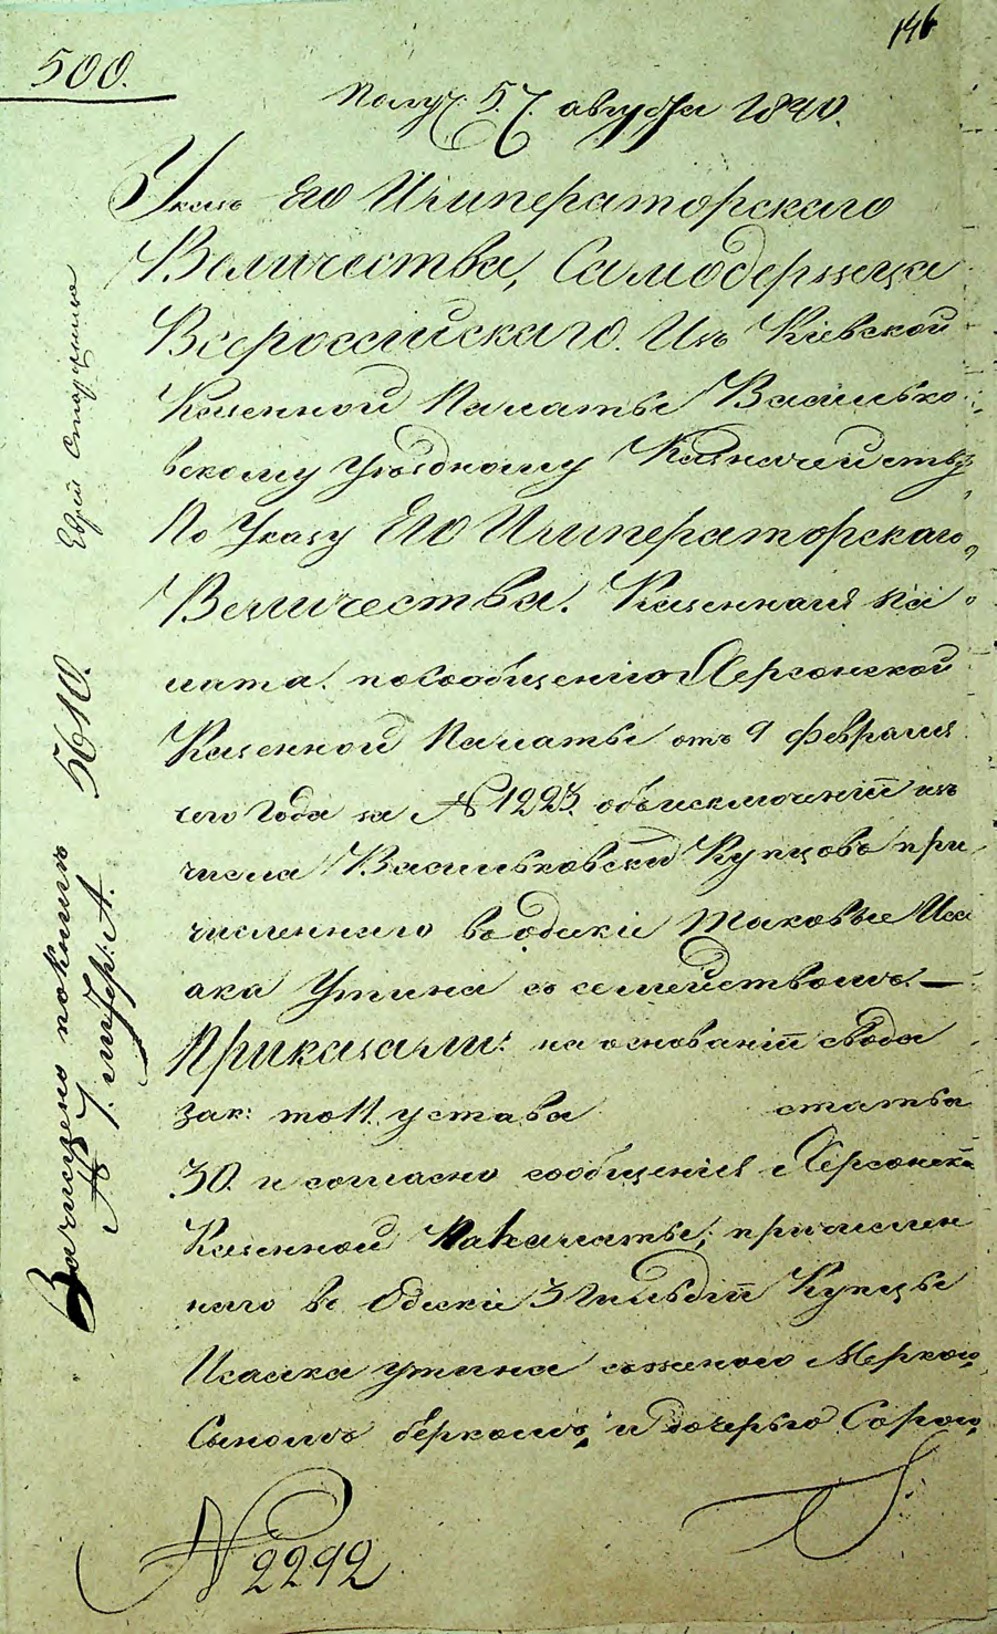 146
500.
Получ. 5. августа 1840.
Указъ Его Императорскаго
Величества, Самодержца
Всероссійскаго. Изъ Кіевской
Казенной Палаты Василько-
вскому Уѣздному Казначейству
По Указу Его Императорскаго
Величества. Казенная Па
лата. по сообщенію Херсонской
Казенной Палаты отъ 9 февраля
сего года за № 1223. объ исключеніи изъ
числа Васильковскихъ Купцовъ при
численнаго въ одескіе таковые Иса
ака Утина съ семействомъ. —
Приказали: на основаніи свода
зак: то 11. устава статьи
30. и согласно сообщенія Херсонск:
Казенной Палаты, причислен
наго въ Одескіе 3 Гильдіи Купцы
Исаака Утина съ женою Меркою,
Сыномъ Беркомъ, и дочерью Сорою,
№ 2292
Зачислено по книгѣ 5610.